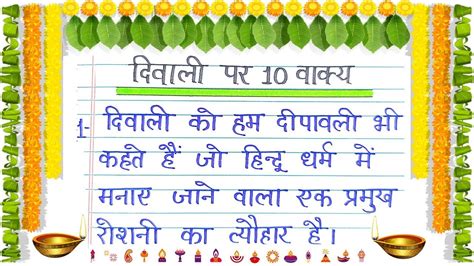 दिवाली पर 10 वाक्य
1- दिवाली को हम दीपावली भी
कहते हैं जो हिन्दू धर्म में
मनाए जाने वाला एक प्रमुख
रोशनी का त्यौहार है।